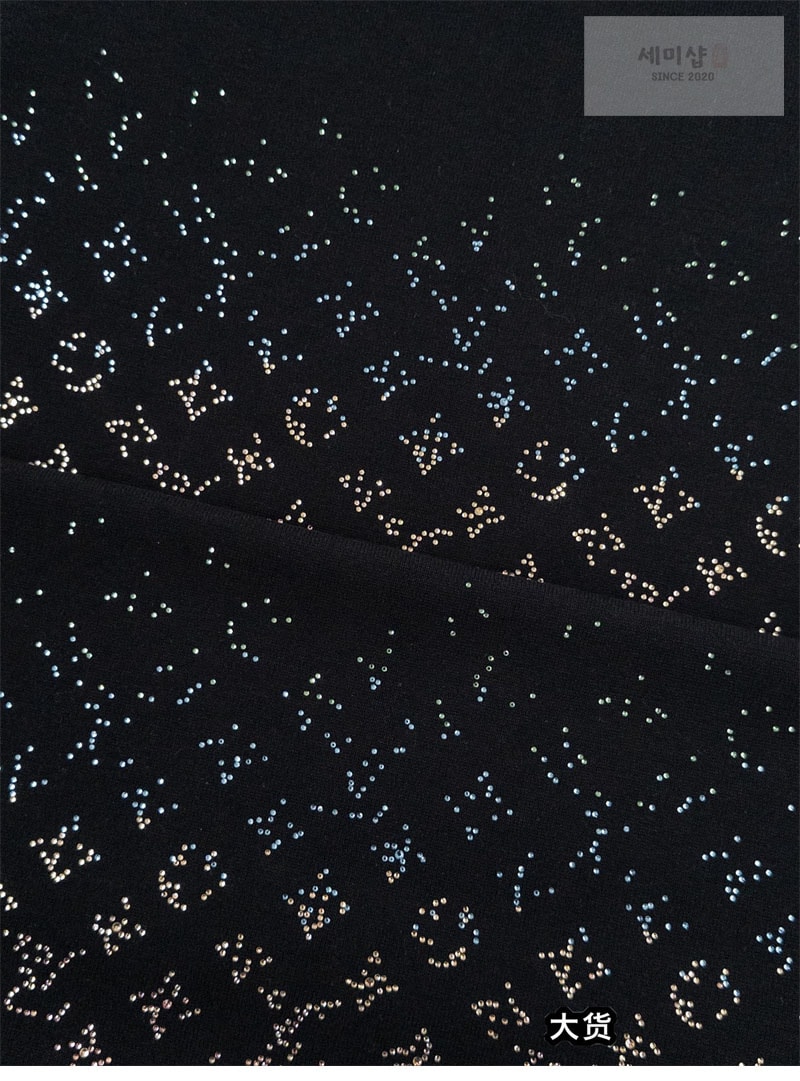 세미샵
SINCE 2020
大货